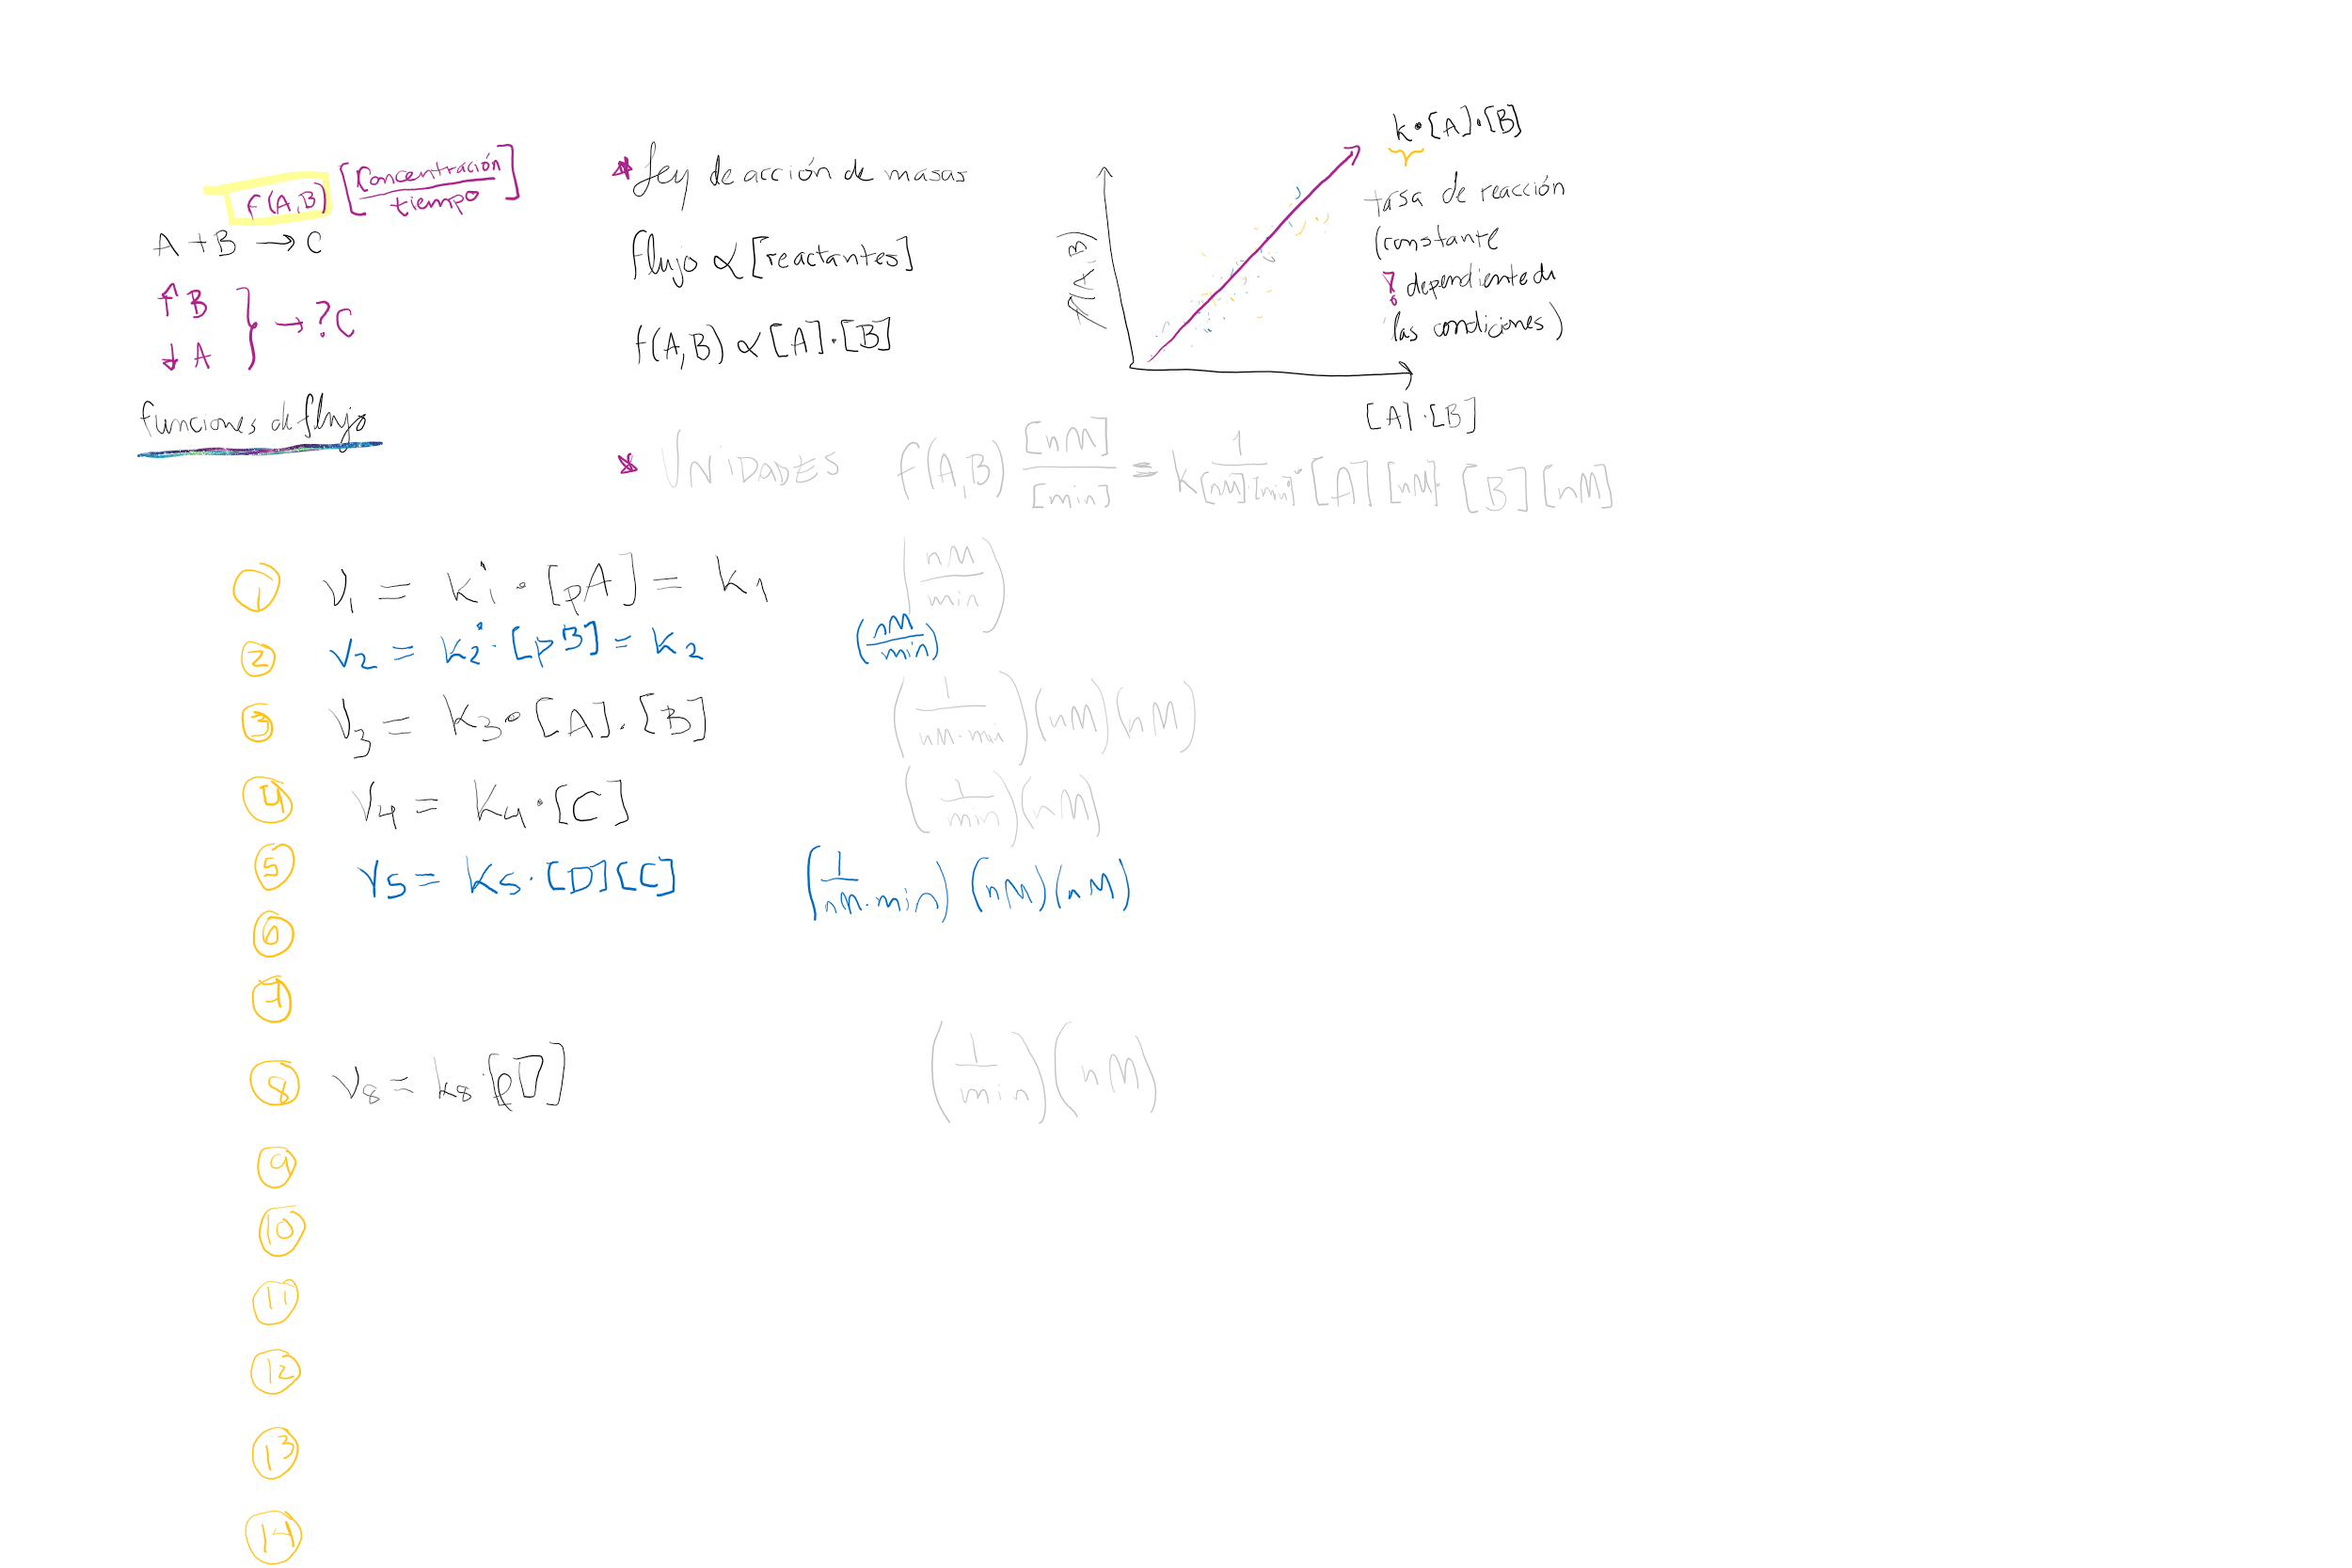 f(A,B) [Concentración / tiempo]
A + B → C
↑ B
↓ A } → ? C
funciones de flujo
* Ley de acción de masas
flujo ∝ [reactantes]
f(A,B) ∝ [A]·[B]
f(A,B)
[A]·[B]
k·[A]·[B]
tasa de reacción
(constante
! dependiente de
las condiciones)
* UNIDADES f(A,B) [nM]/[min] = k 1/([nM]·[min]) · [A][nM]·[B][nM]
1 v1 = k1'·[pA] = k1 (nM/min)
2 v2 = k2'·[pB] = k2 (nM/min)
3 v3 = k3·[A]·[B] (1/(nM·min))(nM)(nM)
4 v4 = k4·[C] (1/min)(nM)
5 v5 = k5·[D][C] (1/(nM·min))(nM)(nM)
6
7
8 v8 = k8·[pD] (1/min)(nM)
9
10
11
12
13
14